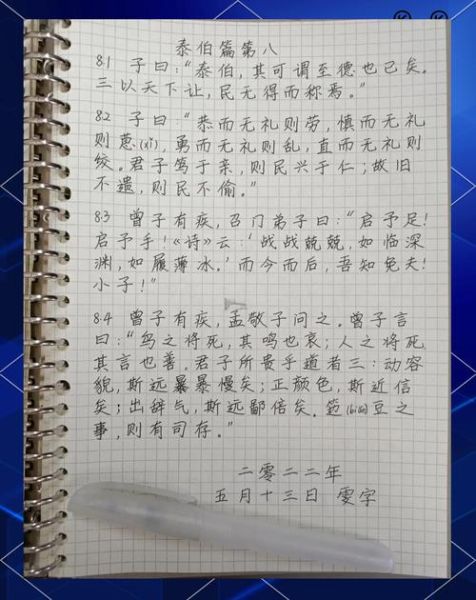 泰伯篇第八
8.1 子曰:“泰伯,其可谓至德也已矣。
三以天下让,民无得而称焉。”
8.2 子曰:“恭而无礼则劳,慎而无礼
则葸(xǐ),勇而无礼则乱,直而无礼则
绞。君子笃于亲,则民兴于仁;故旧
不遗,则民不偷。”
8.3 曾子有疾,召门弟子曰:“启予足!
启予手!《诗》云:‘战战兢兢,如临深
渊,如履薄冰。’而今而后,吾知免夫!
小子!”
8.4 曾子有疾,孟敬子问之。曾子言
曰:“鸟之将死,其鸣也哀;人之将死
其言也善。君子所贵乎道者三:动容
貌,斯远暴暴慢矣;正颜色,斯近信
矣;出辞气,斯远鄙倍矣。笾(biān)豆之
事,则有司存。”
二零二二年
五月十三日 雯字